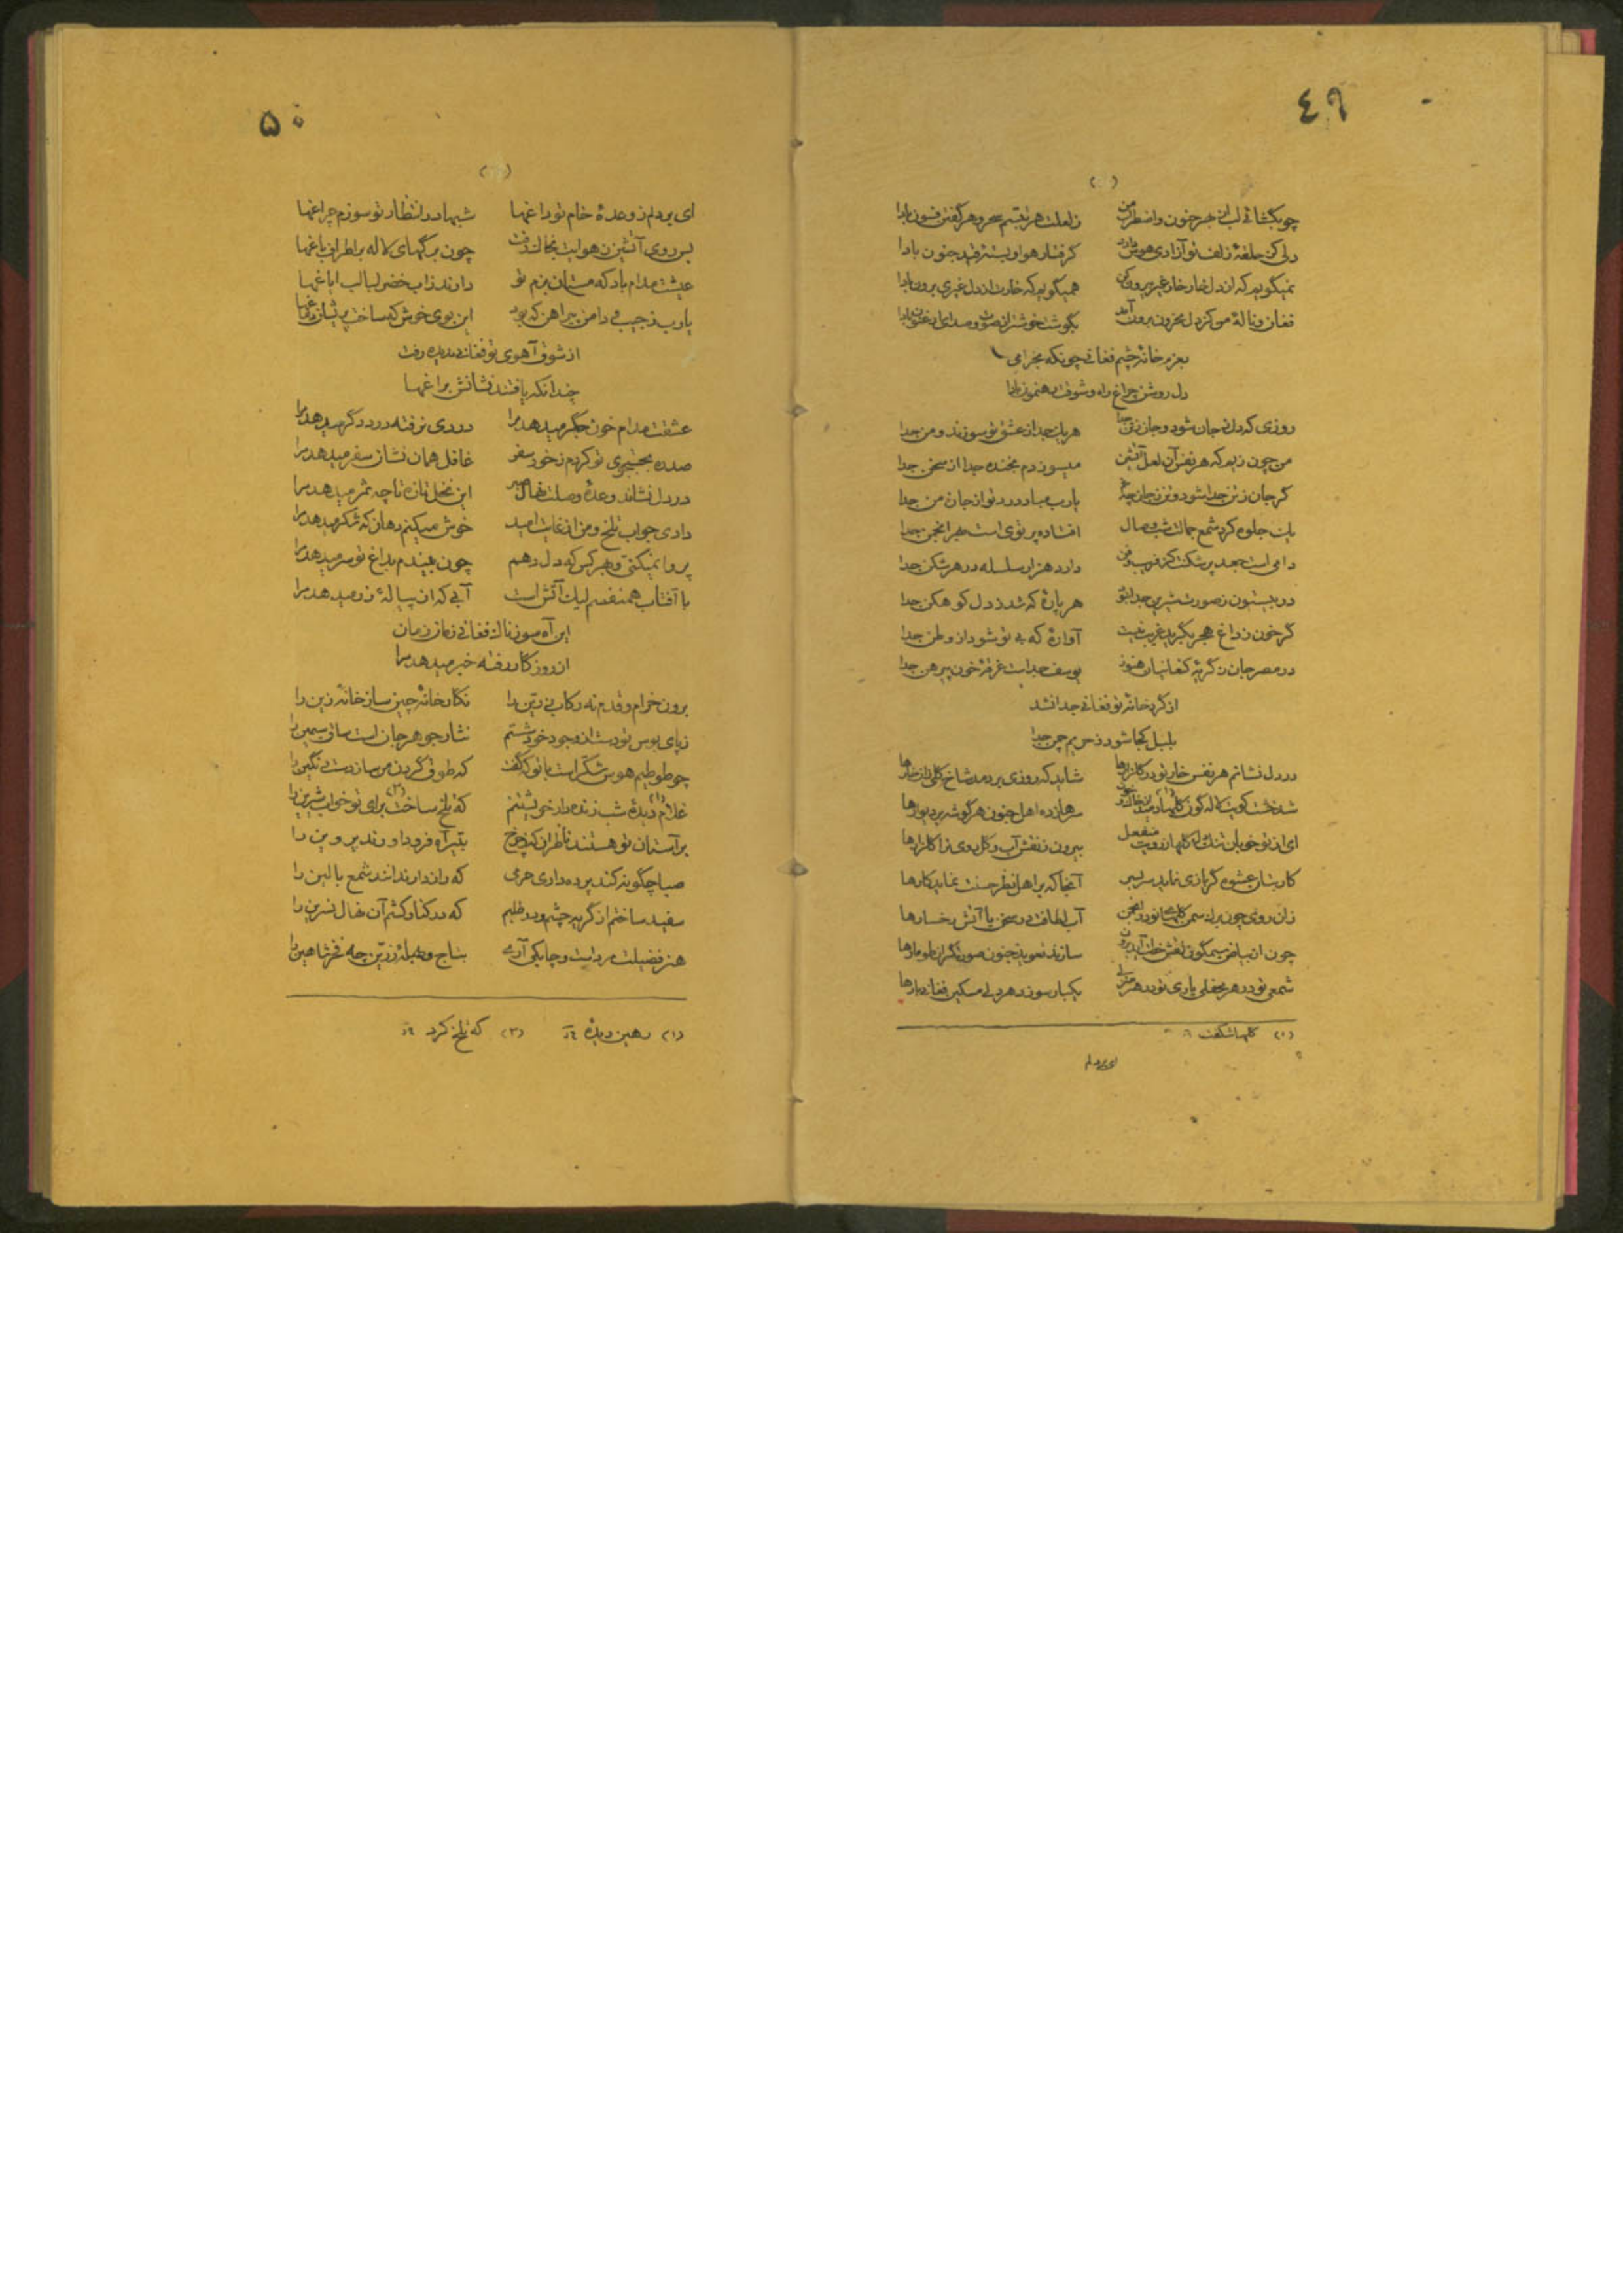 ٤٩
چو بگشائی لب از هر خون و اضطراب من ز لعلت هر تبسم سحر و هر گفتن فسون بادا
دلی کز حلقهٔ زلف تو آزادی هوس دارد گرفتار هوا و بستهٔ قید جنون بادا
نمیگویم که از دل خار خار غیر بیرون کن همیگویم که خارت از دل غیری برون بادا
فغان و نالهٔ من کز دل محزون برون آید بگوشت خوشتر از صوت و صدای ارغنون بادا
بعزم خانهٔ چشم فغانی چونکه بخرامی
دل روشن چراغ راه و شوقت رهنمون بادا
روزی که دل ز جان شود و جان ز تن جدا هر یک جدا ز عشق تو سوزند و من جدا
من چون زیم که هر نفس آن لعل آتشین میسوزدم بخنده جدا از سخن جدا
گر جان ز تن جدا شود و تن ز جان چه غم یارب مباد درد تو از جان من جدا
یک جلوه کرد شمع جمالت شب وصال افتاده پرتوی است بهر انجمن جدا
دامی است جعد پرشکنت کز فریب و فن دارد هزار سلسله در هر شکن جدا
در بیستون ز صورت شیرین جدا بتو هر پارهٔ که شد ز دل کوهکن جدا
گر خون ز داغ هجر بگرید غریب نیست آوارهٔ که بی تو شود از وطن جدا
در مصر جان ز گریهٔ کنعانیان هنوز یوسف جداست غرقهٔ خون پیرهن جدا
از گرد خانهٔ تو فغانی جدا نشد
بلبل کجا شود ز حریم چمن جدا
در دل نشانم هر نفس خار تو در گلزارها شاید که روزی بردمد شاخ گلی زان خارها
شد خشت کویت لاله گون گلها دمید از خاک و خون سر هازده اهل جنون هر گوشه بر دیوارها
ای از تو خوبان تنگدل گلها ز رویت منفعل بیرون ز نقش آب و گل روی ترا گلزارها
کار بتان عشوه گر بازی نماید سربسر آنجا که بر اهل نظر حسنت نماید کارها
زان روی چون برگ سمن گلهاست در انجمن آب لطافت در سخن با آتش رخسارها
چون از بیاض سیمگون نقش خطت آید برون سازند تعویذ جنون صورتگران طومارها
شمعی تو در هر محفلی یاری تو در هر منزلی یکبار سوزد هر دلی مسکین فغانی بارها
(١) گلها شکفت
ای بر دلم
۵۰
ای بر دلم ز وعدهٔ خام تو داغها شبها در انتظار تو سوزم چراغها
بس روی آتشین ز هوایت بخاک رفت چون برگهای لاله بر اطراف باغها
عیشت مدام باد که مستان بزم تو دارند ز آب خضر لبالب ایاغها
یارب ز جیب و دامن پیراهن که بود این بوی خوش که ساخت پریشان دماغها
از شوق آهوی تو فغانی ز دیده رفت
چندانکه یافتند نشانش براغها
عشقت مدام خون جگر میدهد مرا دردی نرفته درد دگر میدهد مرا
صد ره بجستجوی تو کردم ز خود سفر غافل همان نشان سفر میدهد مرا
در دل نشاند وعدهٔ وصلت نهال صبر این نخل تازه تا چه ثمر میدهد مرا
دادی جواب تلخ و من از غایت امید خوش میکنم دهان که شکر میدهد مرا
پروا نمیکنی و بهر کس که دل دهم چون بیندم بداغ تو سر میدهد مرا
با آفتاب همنفسم لیک آتش است آبی که از پیالهٔ زر میدهد مرا
این آه سوزناک فغانی زمان زمان
از روزگار رفته خبر میدهد مرا
برون خرام و قدم نه رکاب زرین را نگارخانهٔ چین ساز خانهٔ زین را
ز پای بوس تو دست از وجود خود شستم نثار جوهر جان است ساق سیمین را
چو طوطیم هوس شکر است با تو که گفت که طوق گردن من ساز دست رنگین را
غلام (١) دیدهٔ شب زنده دار خویشتنم که تلخ ساخت (٢) برای تو خواب شیرین را
بر آستان تو هستند ناظران که ز چرخ بتیر آه فرود آورند پروین را
صبا چگونه کند پرده داری حرمی که رازدار ندانند شمع بالین را
سفید ساختم از گریه چشم و در طلبم که در کنار کشم آن نهال نسرین را
هنر فضیلت مردیست و چابکی آرے بتاج و طبلهٔ زرین چه فخر شاهین را
(١) رهین دیدهٔ (٢) که تلخ کرد